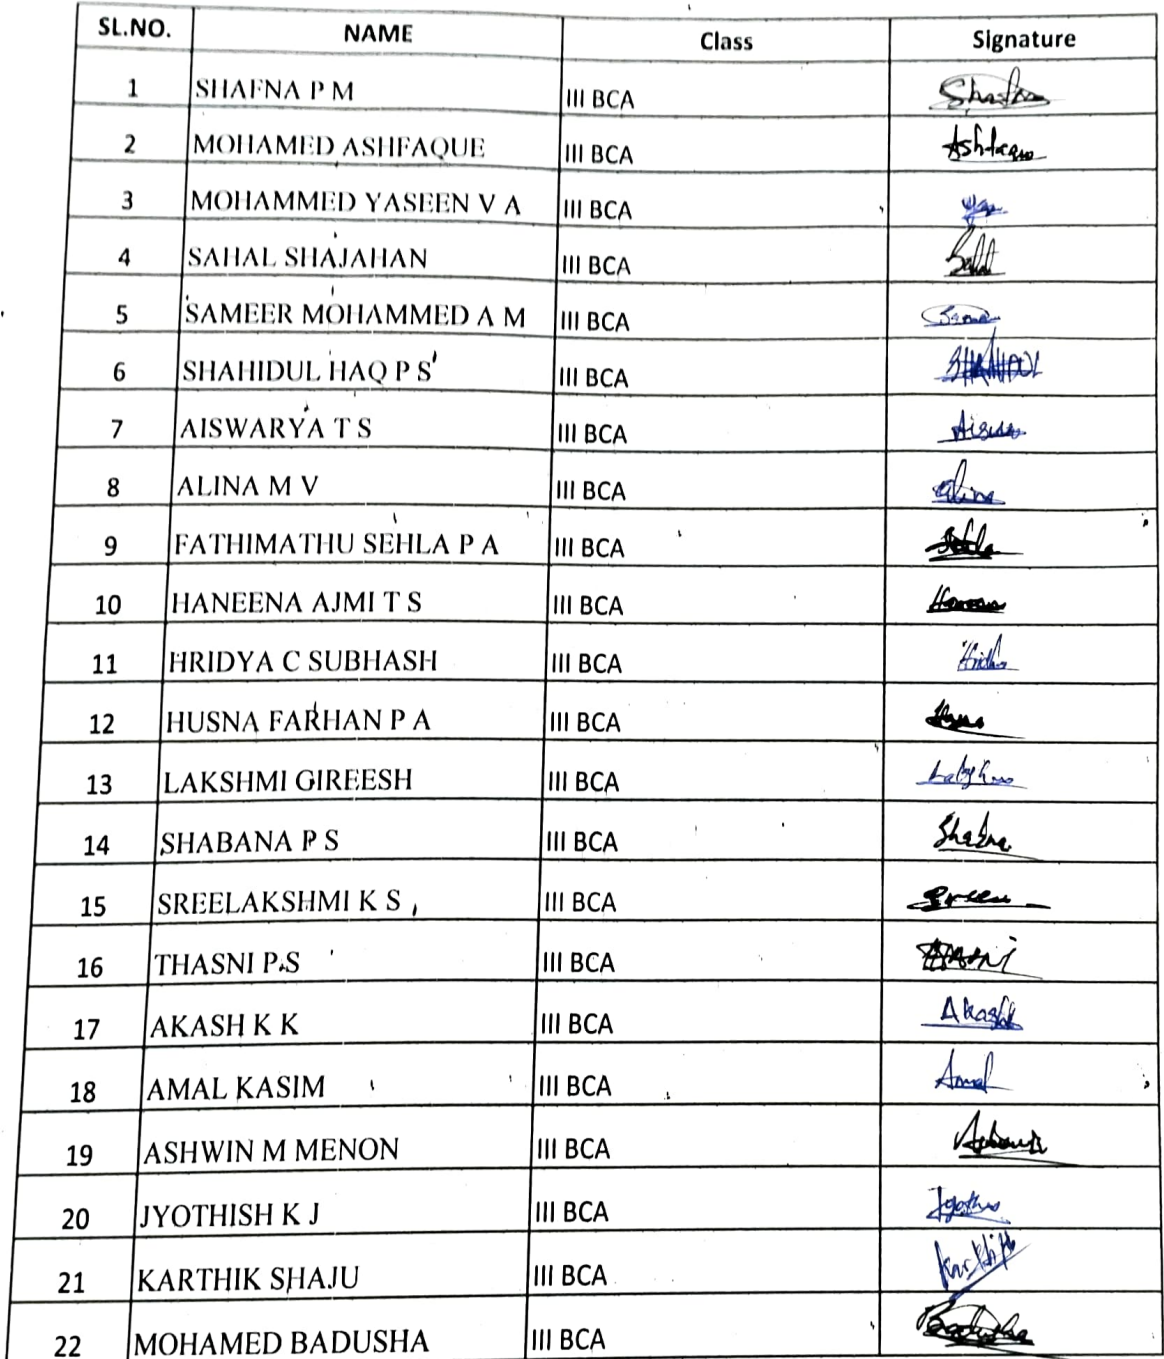 SL.NO. NAME Class Signature
1 SHAFNA P M III BCA
2 MOHAMED ASHFAQUE III BCA
3 MOHAMMED YASEEN V A III BCA
4 SAHAL SHAJAHAN III BCA Sahal
5 SAMEER MOHAMMED A M III BCA
6 SHAHIDUL HAQ P S III BCA
7 AISWARYA T S III BCA
8 ALINA M V III BCA alina
9 FATHIMATHU SEHLA P A III BCA
10 HANEENA AJMI T S III BCA
11 HRIDYA C SUBHASH III BCA
12 HUSNA FARHAN P A III BCA
13 LAKSHMI GIREESH III BCA
14 SHABANA P S III BCA
15 SREELAKSHMI K S III BCA
16 THASNI P S III BCA
17 AKASH K K III BCA Akash
18 AMAL KASIM III BCA Amal
19 ASHWIN M MENON III BCA
20 JYOTHISH K J III BCA
21 KARTHIK SHAJU III BCA Karthik
22 MOHAMED BADUSHA III BCA Badusha